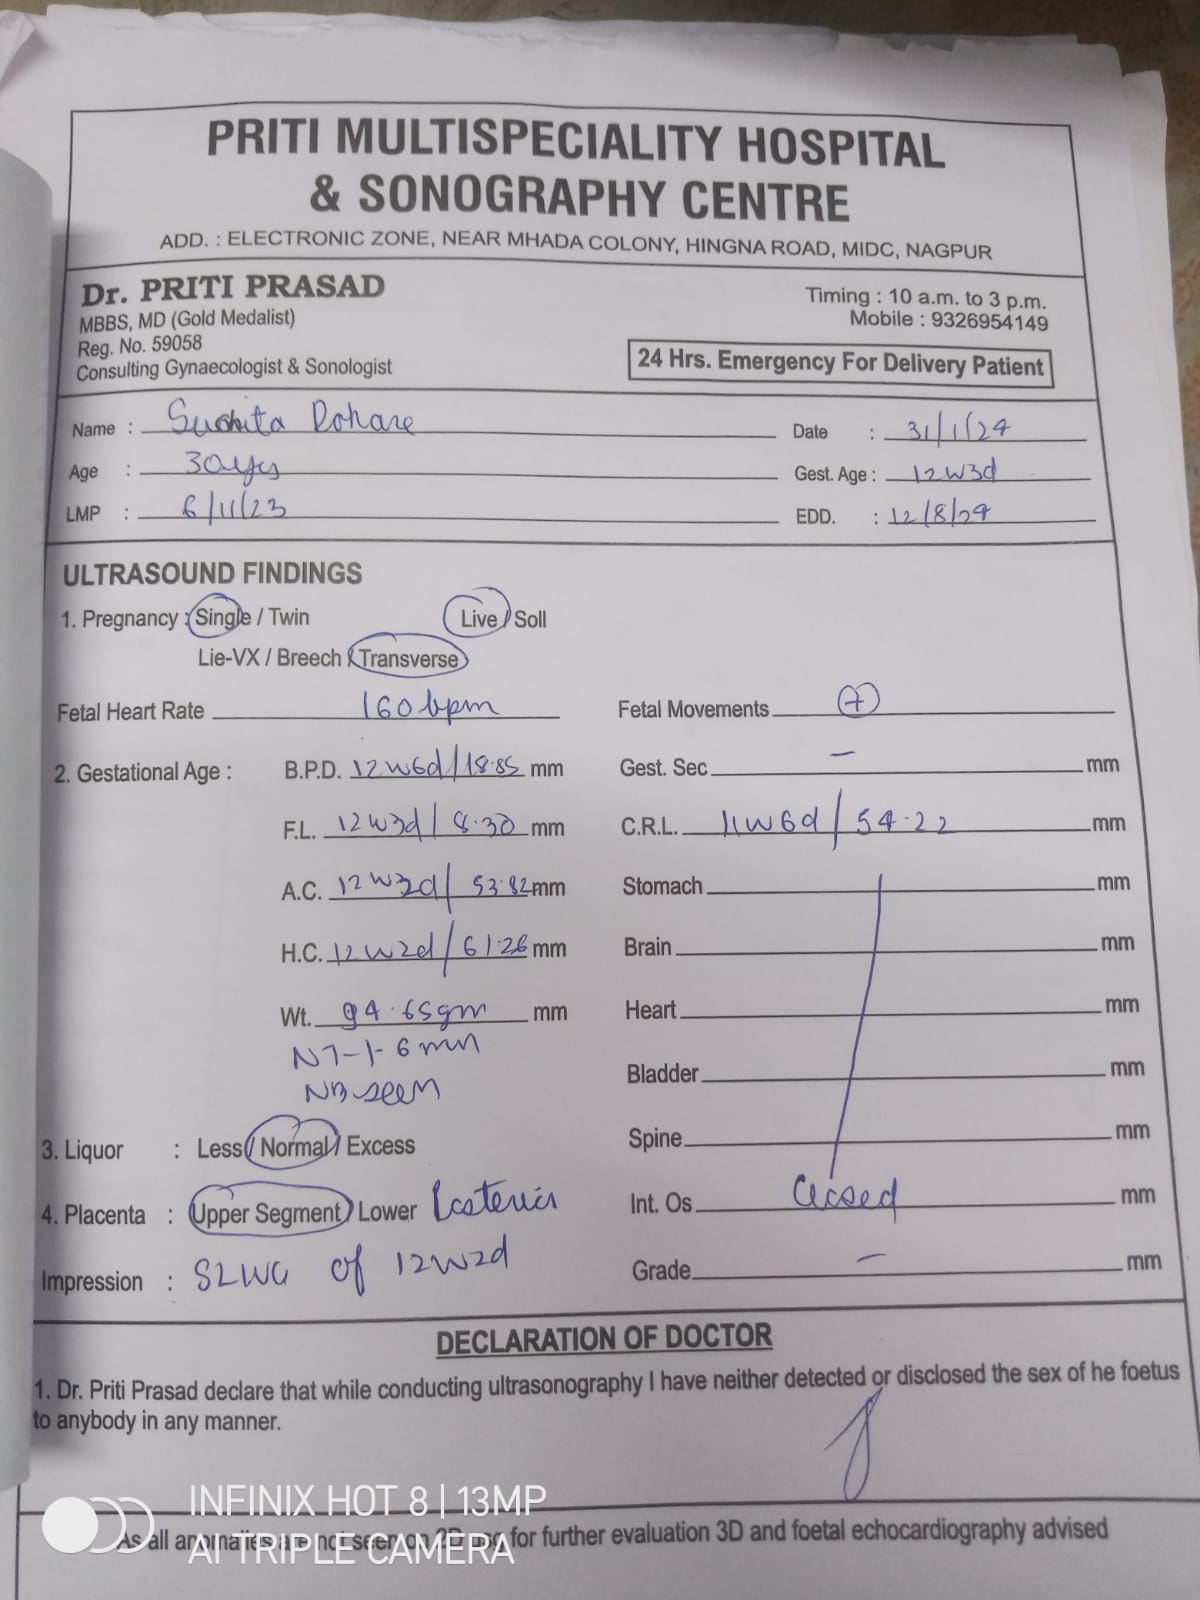 PRITI MULTISPECIALITY HOSPITAL
& SONOGRAPHY CENTRE
ADD. : ELECTRONIC ZONE, NEAR MHADA COLONY, HINGNA ROAD, MIDC, NAGPUR
Dr. PRITI PRASAD
MBBS, MD (Gold Medalist)
Reg. No. 59058
Consulting Gynaecologist & Sonologist
Timing : 10 a.m. to 3 p.m.
Mobile : 9326954149
24 Hrs. Emergency For Delivery Patient
Name : Suchita Dohare Date : 31/1/24
Age : 30yrs Gest. Age : 12W3d
LMP : 6/11/23 EDD. : 12/8/24
ULTRASOUND FINDINGS
1. Pregnancy : Single / Twin Live / Soll
Lie-VX / Breech / Transverse
Fetal Heart Rate 160 bpm Fetal Movements +
2. Gestational Age : B.P.D. 12W6d/18.85 mm Gest. Sec - mm
F.L. 12W3d/8.30 mm C.R.L. 11W6d/54.22 mm
A.C. 12W3d/53.82 mm Stomach mm
H.C. 12W2d/61.26 mm Brain mm
Wt. 94.65gm mm Heart mm
NT-1.6mm
NB-seen Bladder mm
3. Liquor : Less / Normal / Excess Spine mm
4. Placenta : Upper Segment / Lower Int. Os closed mm
Impression : SLIUG of 12W2d Grade - mm
DECLARATION OF DOCTOR
1. Dr. Priti Prasad declare that while conducting ultrasonography I have neither detected or disclosed the sex of he foetus
to anybody in any manner.
As all anomalies are not seen on 2D usg for further evaluation 3D and foetal echocardiography advised
INFINIX HOT 8 | 13MP
AI TRIPLE CAMERA